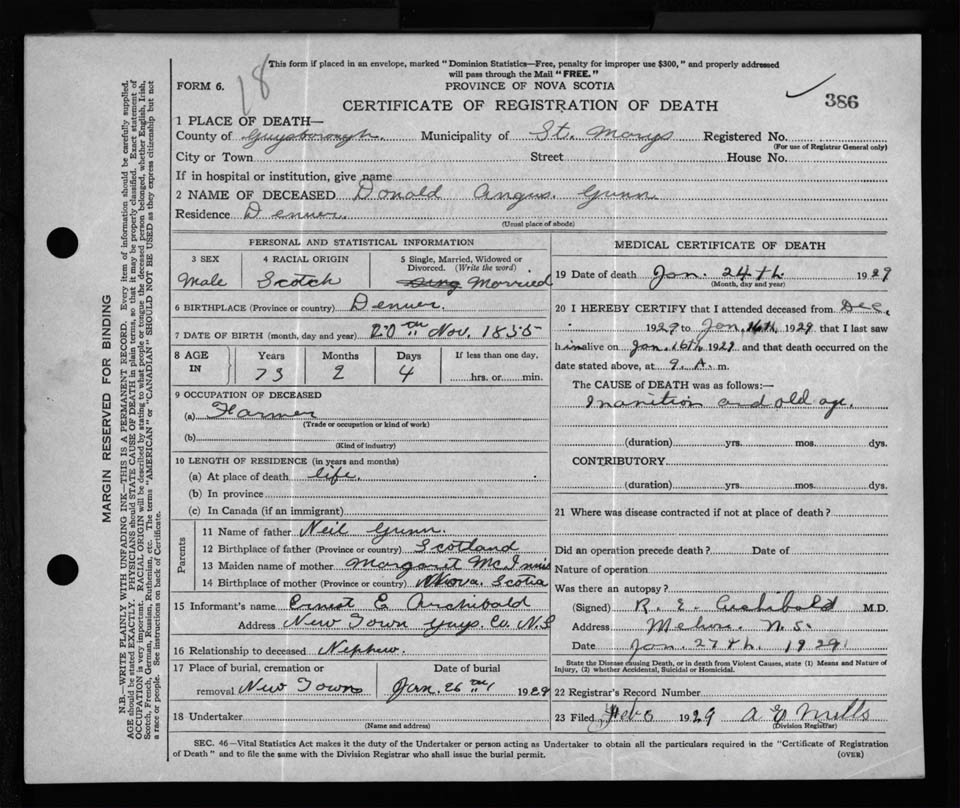 This form if placed in an envelope, marked "Dominion Statistics—Free, penalty for improper use $300," and properly addressed
will pass through the Mail "FREE."
18
FORM 6.
PROVINCE OF NOVA SCOTIA
CERTIFICATE OF REGISTRATION OF DEATH
386
1 PLACE OF DEATH—
County of Guysborough. Municipality of St. Marys Registered No.
(For use of Registrar General only)
City or Town Street House No.
If in hospital or institution, give name
2 NAME OF DECEASED Donald Angus Gunn
Residence Denver.
(Usual place of abode)
PERSONAL AND STATISTICAL INFORMATION
3 SEX 4 RACIAL ORIGIN 5 Single, Married, Widowed or
Divorced. (Write the word)
Male Scotch Sing Married
6 BIRTHPLACE (Province or country) Denver.
7 DATE OF BIRTH (month, day and year) 20th Nov. 1855
8 AGE IN Years Months Days If less than one day.
73 2 4 hrs. or min.
9 OCCUPATION OF DECEASED
(a) Farmer
(Trade or occupation or kind of work)
(b)
(Kind of industry)
10 LENGTH OF RESIDENCE (in years and months)
(a) At place of death life.
(b) In province
(c) In Canada (if an immigrant)
Parents
11 Name of father Neil Gunn.
12 Birthplace of father (Province or country) Scotland
13 Maiden name of mother Margaret McInnis
14 Birthplace of mother (Province or country) Nova Scotia
15 Informant's name Ernest E Archibald
Address New Town Guys. Co. N.S
16 Relationship to deceased Nephew.
17 Place of burial, cremation or Date of burial
removal New Town Jan. 26th 1929
18 Undertaker
(Name and address)
MEDICAL CERTIFICATE OF DEATH
19 Date of death Jan. 24th 1929
(Month, day and year)
20 I HEREBY CERTIFY that I attended deceased from Dec.
" 1929 to Jan. 16th 1929 that I last saw
him alive on Jan. 16th 1929 and that death occurred on the
date stated above, at 9. A. m.
The CAUSE of DEATH was as follows:—
Inanition and old age.
(duration) yrs. mos. dys.
CONTRIBUTORY
(duration) yrs. mos. dys.
21 Where was disease contracted if not at place of death?
Did an operation precede death? Date of
Nature of operation
Was there an autopsy?
(Signed) R. E. Archibald M.D.
Address N.S.
Date Jan. 27th. 1929
State the Disease causing Death, or in death from Violent Causes, state (1) Means and Nature of
Injury, (2) whether Accidental, Suicidal or Homicidal.
22 Registrar's Record Number
23 Filed Feb 1929 Mills
(Division Registrar)
SEC. 46—Vital Statistics Act makes it the duty of the Undertaker or person acting as Undertaker to obtain all the particulars required in the "Certificate of Registration
of Death" and to file the same with the Division Registrar who shall issue the burial permit. (OVER)
MARGIN RESERVED FOR BINDING
N.B.—WRITE PLAINLY WITH UNFADING INK—THIS IS A PERMANENT RECORD. Every item of information should be carefully supplied.
AGE should be stated EXACTLY. PHYSICIANS should STATE CAUSE OF DEATH in plain terms, so that it may be properly classified. Exact statement of
OCCUPATION is very important. RACIAL ORIGIN will be described by stating to what people or tongue the deceased person belonged, whether English, Irish,
Scotch, French, German, Russian, Ruthenian, etc. The terms "AMERICAN" or "CANADIAN" SHOULD NOT BE USED as they express citizenship but not
a race or people. See instructions on back of Certificate.